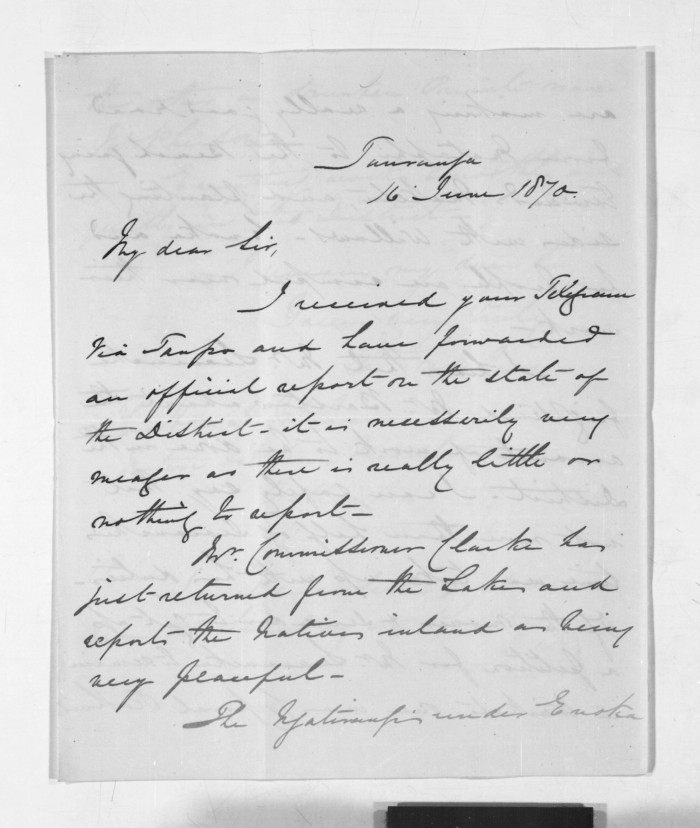 Tauranga
16 June 1870.
My dear Sir,
I received your Telegram
via Taupo and have forwarded
an official report on the state of
the District - it is necessarily very
meager as there is really little or
nothing to report -
Mr. Commissioner Clarke has
just returned from the Lakes and
reports the Natives inland as being
very peaceful -
The Ngaterangis under Enoka